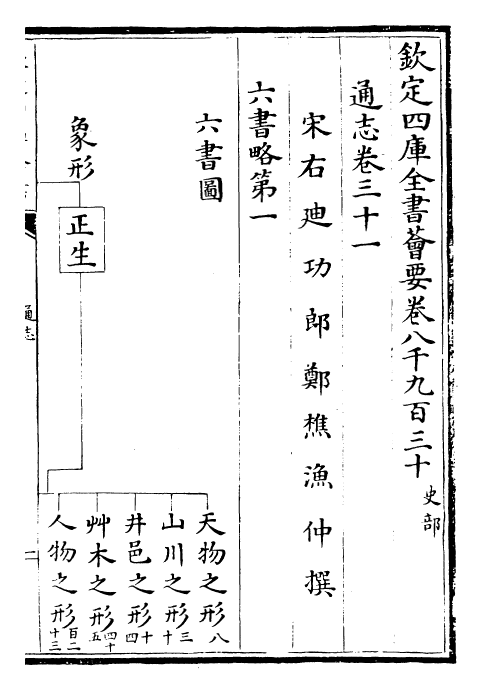 欽定四庫全書薈要卷八千九百三十 史部
通志卷三十一
宋右迪功郎鄭樵漁仲撰
六書略第一
六書圖
象形
正生
天物之形八
山川之形三十
井邑之形十四
艸木之形四十五
人物之形百二十三
通志